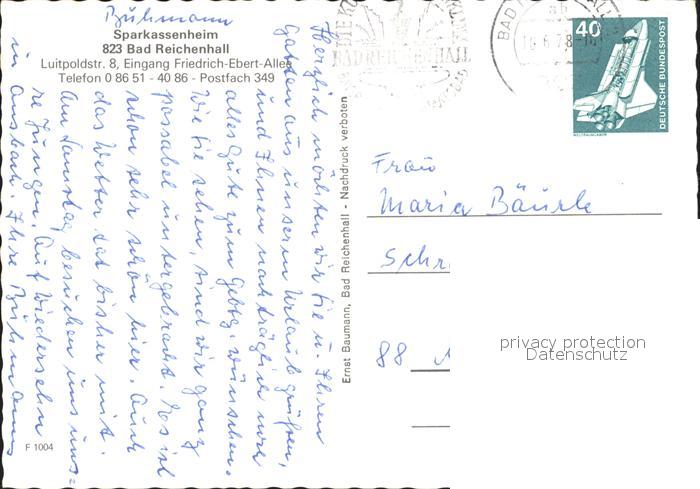 Bühmann
Sparkassenheim
823 Bad Reichenhall
Luitpoldstr. 8, Eingang Friedrich-Ebert-Allee
Telefon 0 86 51 - 40 86 - Postfach 349
Herzlich möchten wir Sie u. Ihren
Gatten aus unserm Urlaub grüßen,
und Ihnen nachträglich
alles Gute zum Gebtg. wünschen.
Wie Sie sehen, sind wir ganz
passabel untergebracht. Es ist
schon sehr schön hier. Auch
das Wetter tat bisher mit.
Am Samstag besuchen uns uns=
re Jungen. Auf Wiedersehn
in Ansbach. Ihre Bühmanns
F 1004
Ernst Baumann, Bad Reichenhall - Nachdruck verboten
BAD REICHENHALL
40
DEUTSCHE BUNDESPOST
WELTRAUMLABOR
Frau
Maria Bäurle
Schr
88
privacy protection
Datenschutz